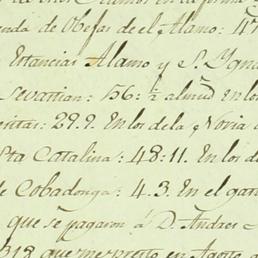 nda de Obejas de el Alamo: 47
Estancias Alamo y S. Ygna
Sevastian: 156: ½ almud En los
ritas: 29.9. En los de la Novia
Sta Catalina: 48:11. En los de
de Cobadonga: 4.3. En el gana
que se pagaron á D. Andres
me presto en Agosto